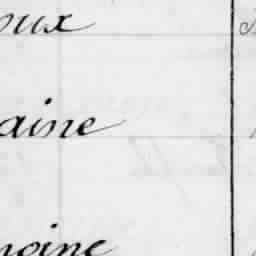 oux
aine
moine